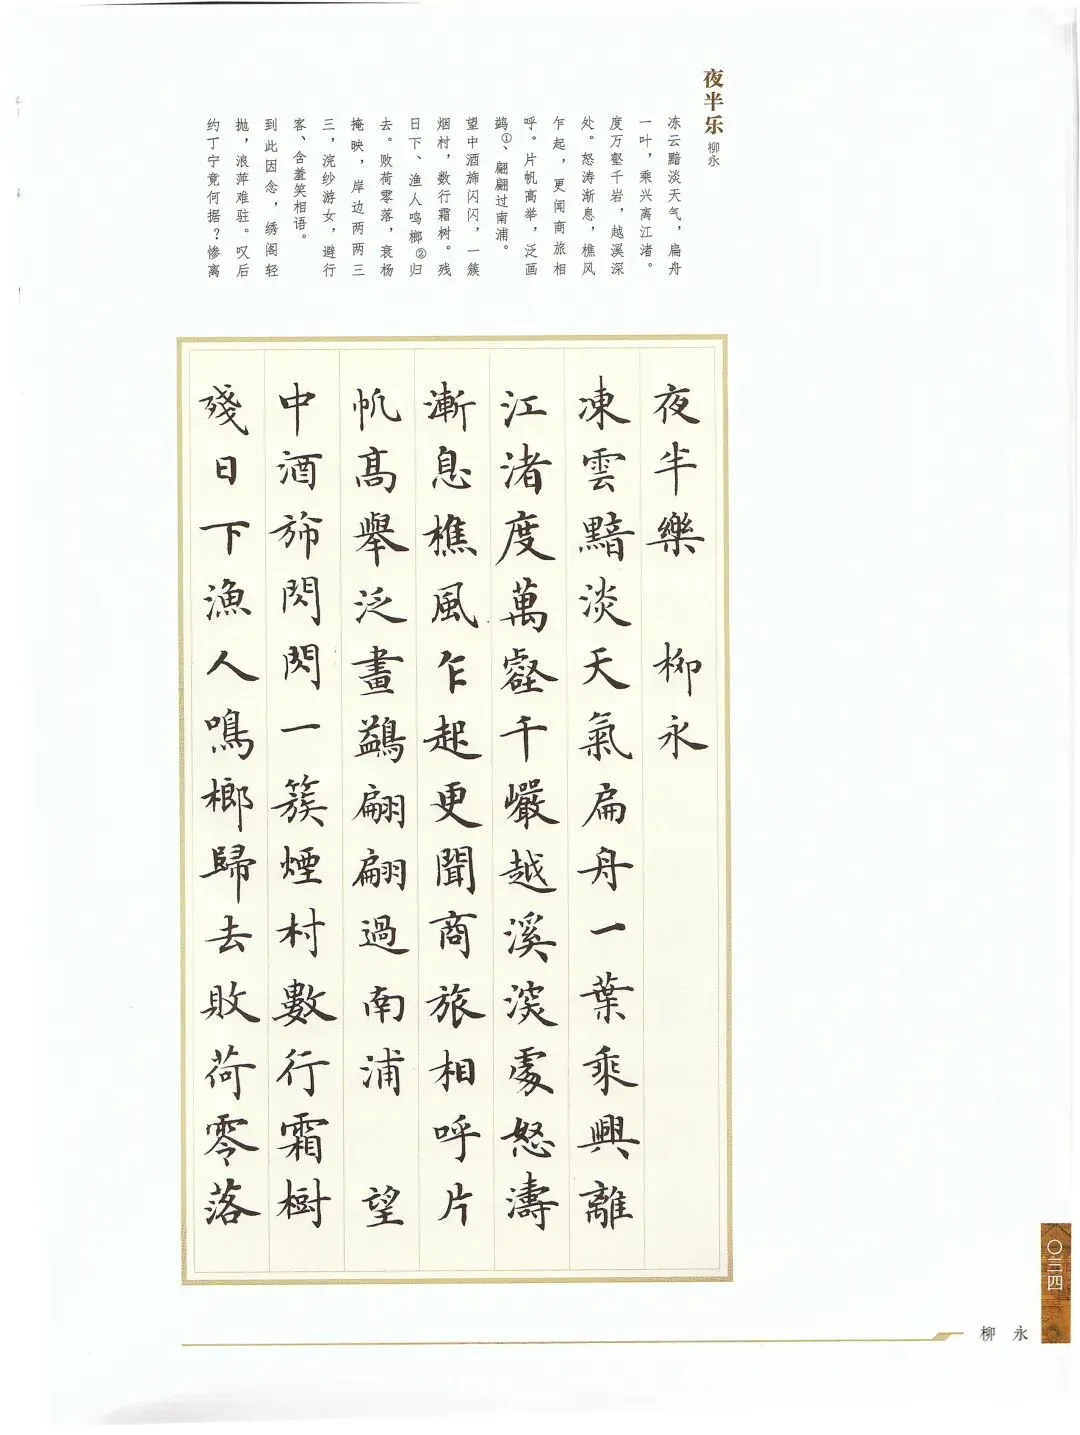 夜半乐 柳永
冻云黯淡天气，扁舟
一叶，乘兴离江渚。
度万壑千岩，越溪深
处。怒涛渐息，樵风
乍起，更闻商旅相
呼。片帆高举，泛画
鹢①、翩翩过南浦。
望中酒旆闪闪，一簇
烟村，数行霜树。残
日下、渔人鸣榔②归
去。败荷零落，衰杨
掩映，岸边两两三
三，浣纱游女，避行
客、含羞笑相语。
到此因念，绣阁轻
抛，浪萍难驻。叹后
约丁宁竟何据？惨离
夜半樂 柳永
凍雲黯淡天氣扁舟一葉乘興離
江渚度萬壑千巖越溪深處怒濤
漸息樵風乍起更聞商旅相呼片
帆高舉泛畫鷁翩翩過南浦 望
中酒旆閃閃一簇煙村數行霜樹
殘日下漁人鳴榔歸去敗荷零落
〇三四
柳永